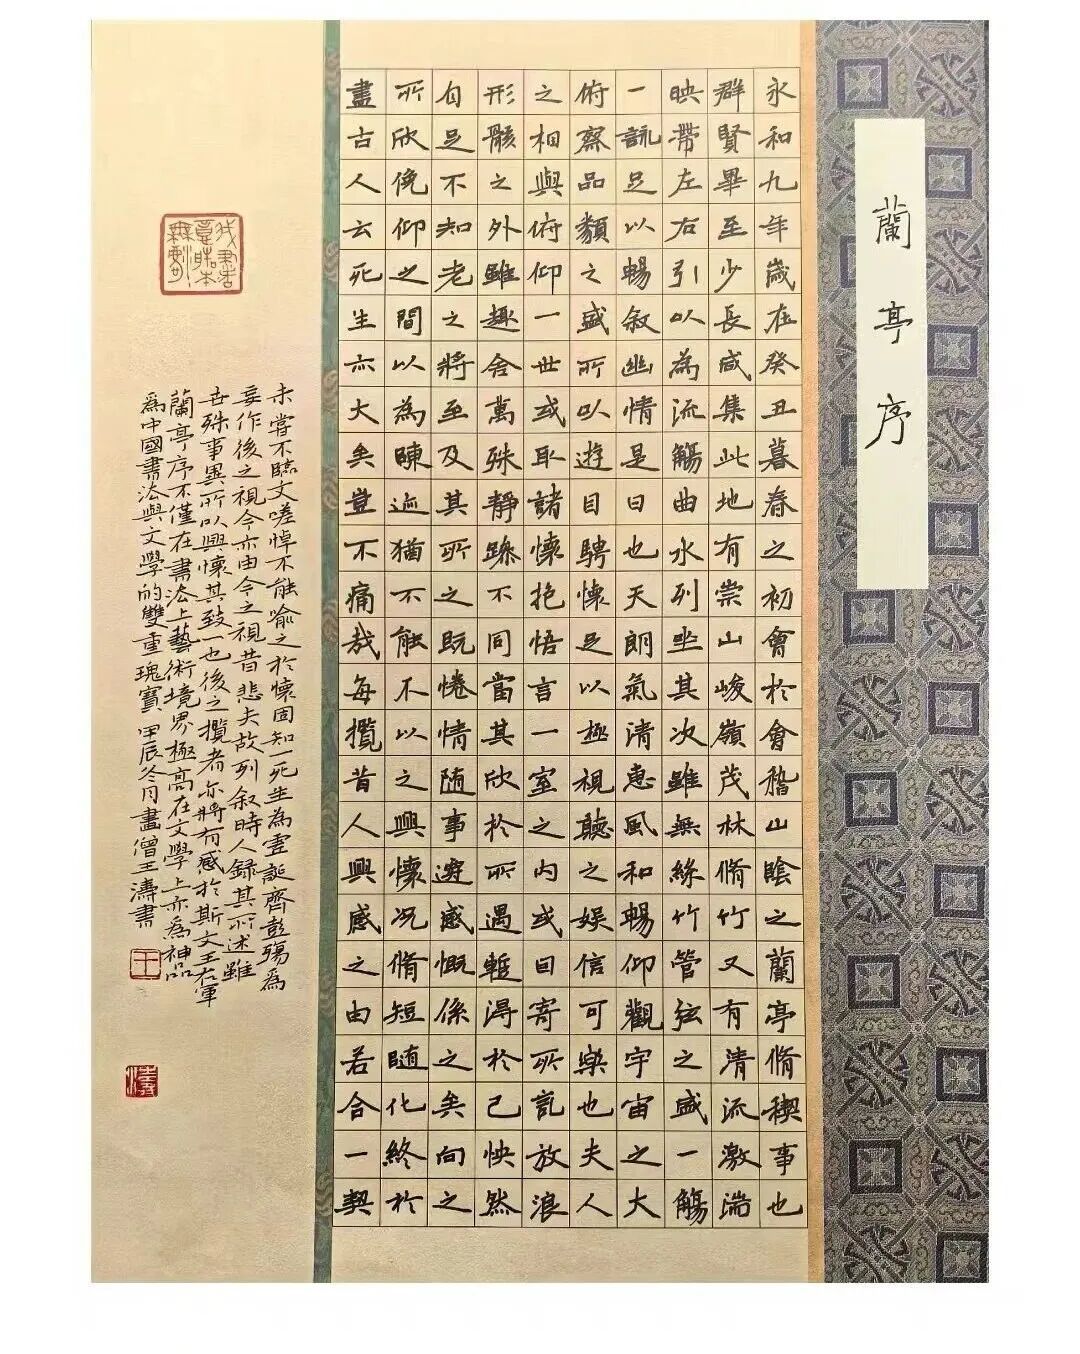 蘭亭序
永和九年歲在癸丑暮春之初會於會稽山陰之蘭亭脩稧事也
群賢畢至少長咸集此地有崇山峻嶺茂林脩竹又有清流激湍
映帶左右引以為流觴曲水列坐其次雖無絲竹管弦之盛一觴
一詠足以暢敘幽情是日也天朗氣清惠風和暢仰觀宇宙之大
俯察品類之盛所以遊目騁懷足以極視聽之娛信可樂也夫人
之相與俯仰一世或取諸懷抱悟言一室之內或因寄所託放浪
形骸之外雖趣舍萬殊靜躁不同當其欣於所遇蹔得於己怏然
自足不知老之將至及其所之既惓情随事遷感慨係之矣向之
所欣俛仰之間以為陳迹猶不能不以之興懷況脩短随化終於
盡古人云死生亦大矣豈不痛哉每攬昔人興感之由若合一契
未嘗不臨文嗟悼不能喻之於懷固知一死生為虛誕齊彭殤為
妄作後之視今亦由今之視昔悲夫故列敘時人錄其所述雖
世殊事異所以興懷其致一也後之攬者亦將有感於斯文王右軍
蘭亭序不僅在書法上藝術境界極高在文學上亦為神品
為中國書法與文學的雙重瑰寶甲辰冬月畫僧王濤書
王
濤